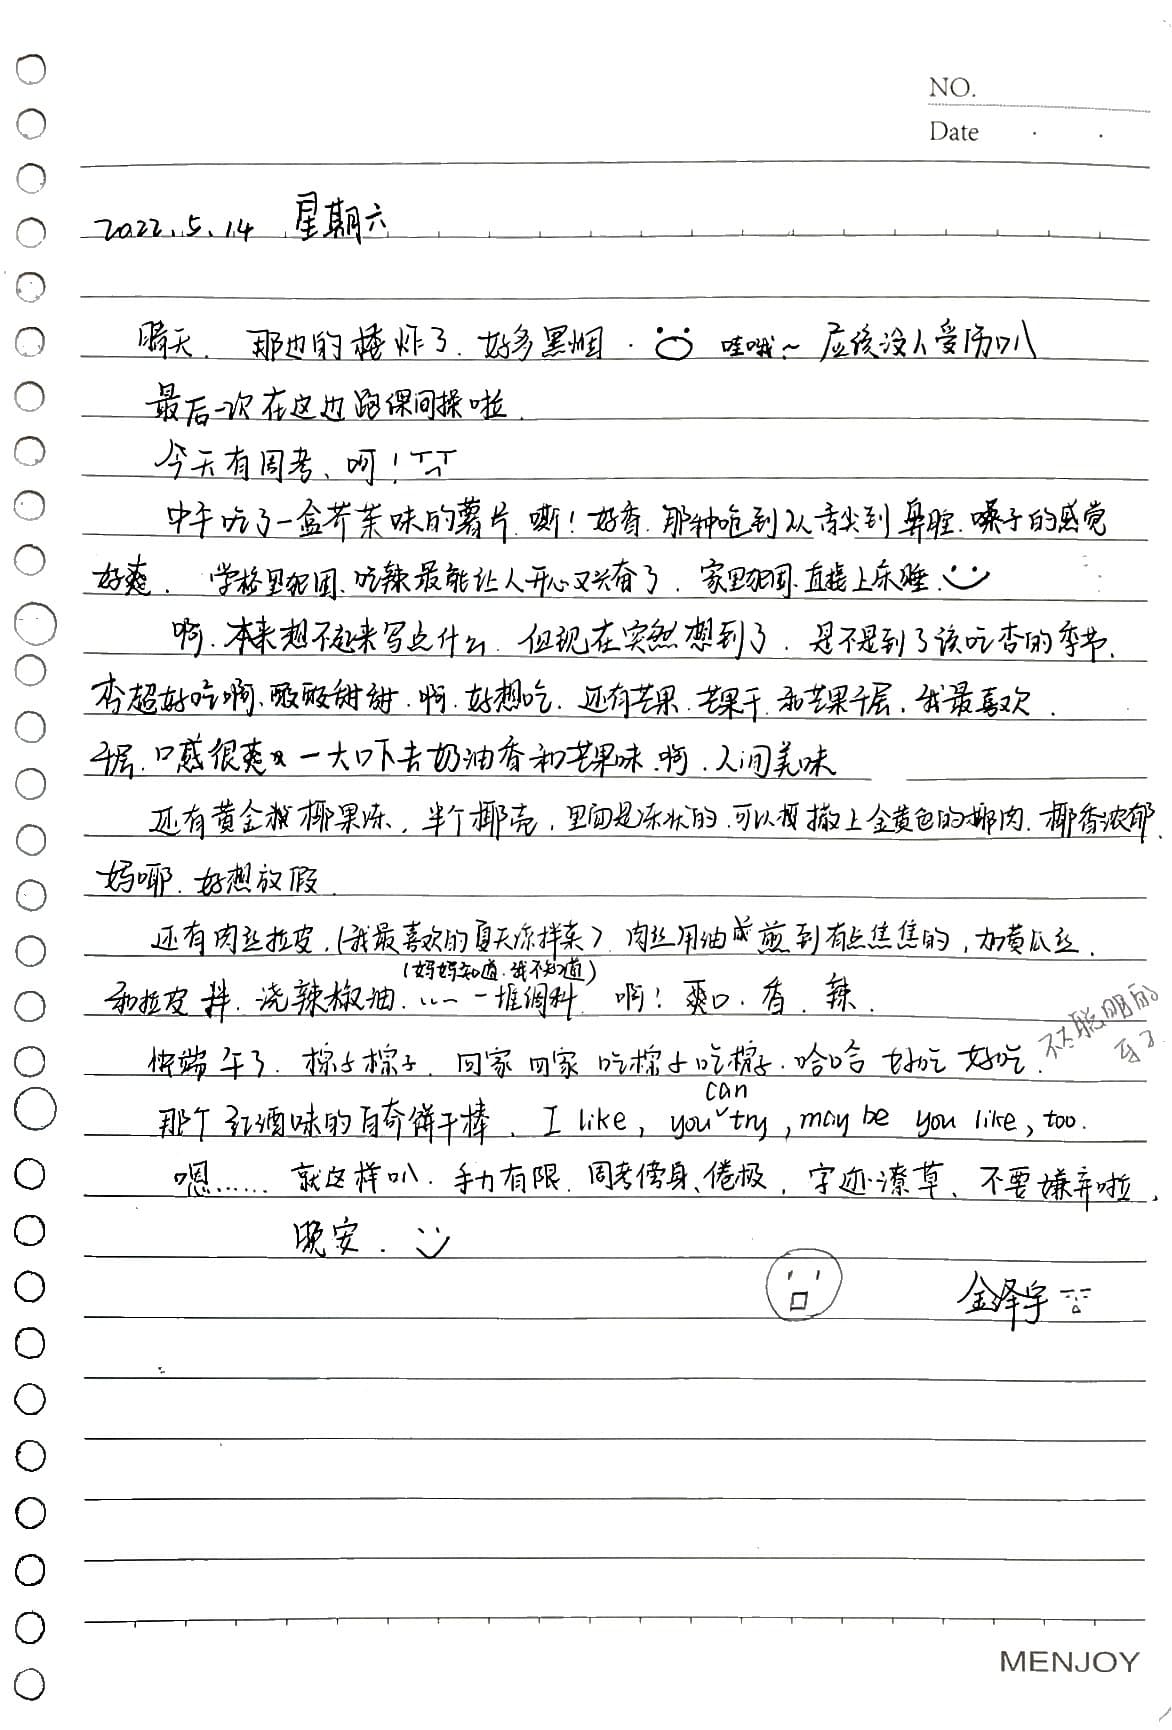 NO.
Date
2022.5.14 星期六
晴天. 那边的楼炸了. 好多黑烟. 哇哦~ 应该没人受伤叭
最后一次在这边跑课间操啦.
今天有周考、呵!
中午吃了一盒芥茉味的薯片. 嘶! 好香. 那种呛到从舌尖到鼻腔. 嗓子的感觉
好爽. 学格里犯困. 吃辣最能让人开心又兴奋了. 家里犯困. 直接上床睡.
啊. 本来想不起来写点什么. 但现在突然想到了. 是不是到了该吃杏的季节.
杏超好吃啊. 酸酸甜甜. 啊. 好想吃. 还有芒果. 芒果干. 和芒果千层. 我最喜欢
千层. 口感很爽 一大口下去奶油香和芒果味. 啊. 人间美味
还有黄金椰果冻. 半个椰壳. 里面是冻状的. 可以撒上金黄色的椰肉. 椰香浓郁.
妈耶. 好想放假.
还有肉丝拉皮. (我最喜欢的夏天凉拌菜) 肉丝用油煎到有点焦焦的, 加黄瓜丝.
(妈妈知道. 我不知道)
和拉皮拌. 浇辣椒油. …… 一堆调料 啊! 爽口. 香. 辣.
快端午了. 棕子棕子. 回家 回家 吃棕子吃棕子. 哈哈 好吃 好吃. 不太聪明的
can
那个红酒味的百奇饼干棒. I like, you try, may be you like, too.
嗯…… 就这样叭. 手力有限. 周考傍身、倦极. 字迹潦草、不要嫌弃啦.
晚安.
金泽宇
MENJOY